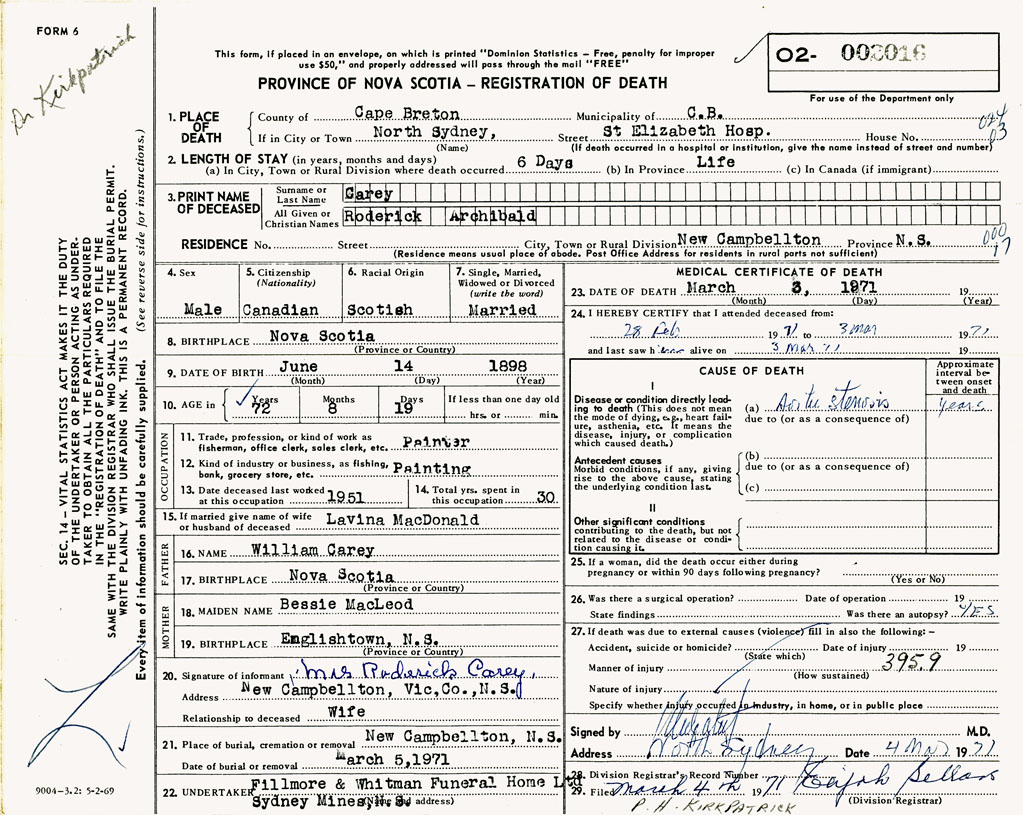 FORM 6
Dr Kirkpatrick
This form, if placed in an envelope, on which is printed "Dominion Statistics – Free, penalty for improper
use $50," and properly addressed will pass through the mail "FREE"
PROVINCE OF NOVA SCOTIA – REGISTRATION OF DEATH
02- 002016
For use of the Department only
1. PLACE OF DEATH
County of Cape Breton Municipality of C.B.
If in City or Town North Sydney, Street St Elizabeth Hosp. House No.
(Name) (If death occurred in a hospital or institution, give the name instead of street and number)
2. LENGTH OF STAY (in years, months and days)
(a) In City, Town or Rural Division where death occurred 6 Days (b) In Province Life (c) In Canada (if immigrant)
3. PRINT NAME OF DECEASED
Surname or Last Name Carey
All Given or Christian Names Roderick Archibald
RESIDENCE No. Street City, Town or Rural Division New Campbellton Province N.S.
(Residence means usual place of abode. Post Office Address for residents in rural parts not sufficient)
4. Sex Male
5. Citizenship (Nationality) Canadian
6. Racial Origin Scotish
7. Single, Married, Widowed or Divorced (write the word) Married
8. BIRTHPLACE Nova Scotia
(Province or Country)
9. DATE OF BIRTH June 14 1898
(Month) (Day) (Year)
10. AGE in Years 72 Months 8 Days 19 If less than one day old hrs. or min.
OCCUPATION
11. Trade, profession, or kind of work as
fisherman, office clerk, sales clerk, etc. Painter
12. Kind of industry or business, as fishing,
bank, grocery store, etc. Painting
13. Date deceased last worked at this occupation 1951
14. Total yrs. spent in this occupation 30
15. If married give name of wife
or husband of deceased Lavina MacDonald
FATHER
16. NAME William Carey
17. BIRTHPLACE Nova Scotia
(Province or Country)
MOTHER
18. MAIDEN NAME Bessie MacLeod
19. BIRTHPLACE Englishtown, N.S.
(Province or Country)
20. Signature of informant Mrs Roderick Carey,
Address New Campbellton, Vic,Co.,N.S.
Relationship to deceased Wife
21. Place of burial, cremation or removal New Campbellton, N.S.
Date of burial or removal March 5,1971
22. UNDERTAKER Fillmore & Whitman Funeral Home Ltd
Sydney Mines, N.S. (Name and address)
MEDICAL CERTIFICATE OF DEATH
23. DATE OF DEATH March 3, 1971 19
(Month) (Day) (Year)
24. I HEREBY CERTIFY that I attended deceased from:
28 Feb 1971 to 3 mar 1971
and last saw him alive on 3 Mar 71 19
CAUSE OF DEATH
Approximate interval between onset and death
I
Disease or condition directly leading to death (This does not
mean the mode of dying, e.g., heart failure, asthenia, etc. It means the
disease, injury, or complication which caused death.)
(a) Aortic Stenosis years
due to (or as a consequence of)
Antecedent causes
Morbid conditions, if any, giving
rise to the above cause, stating
the underlying condition last.
(b)
due to (or as a consequence of)
(c)
II
Other significant conditions
contributing to the death, but not
related to the disease or condition causing it.
25. If a woman, did the death occur either during
pregnancy or within 90 days following pregnancy?
(Yes or No)
26. Was there a surgical operation? Date of operation 19
State findings Was there an autopsy? YES
27. If death was due to external causes (violence) fill in also the following: –
Accident, suicide or homicide? Date of injury 19
(State which)
Manner of injury 395.9
(How sustained)
Nature of injury
Specify whether injury occurred in industry, in home, or in public place
Signed by M.D.
Address North Sydney Date 4 Mar 1971
28. Division Registrar's Record Number
29. Filed March 4th 1971 Elijah Sellars
(Division Registrar)
P. H. KIRKPATRICK
SEC. 14 – VITAL STATISTICS ACT MAKES IT THE DUTY
OF THE UNDERTAKER OR PERSON ACTING AS UNDER-
TAKER TO OBTAIN ALL THE PARTICULARS REQUIRED
IN THE "REGISTRATION OF DEATH" AND TO FILE THE
SAME WITH THE DIVISION REGISTRAR WHO SHALL ISSUE THE BURIAL PERMIT.
WRITE PLAINLY WITH UNFADING INK. THIS IS A PERMANENT RECORD.
Every item of information should be carefully supplied. (See reverse side for instructions.)
9004-3.2: 5-2-69